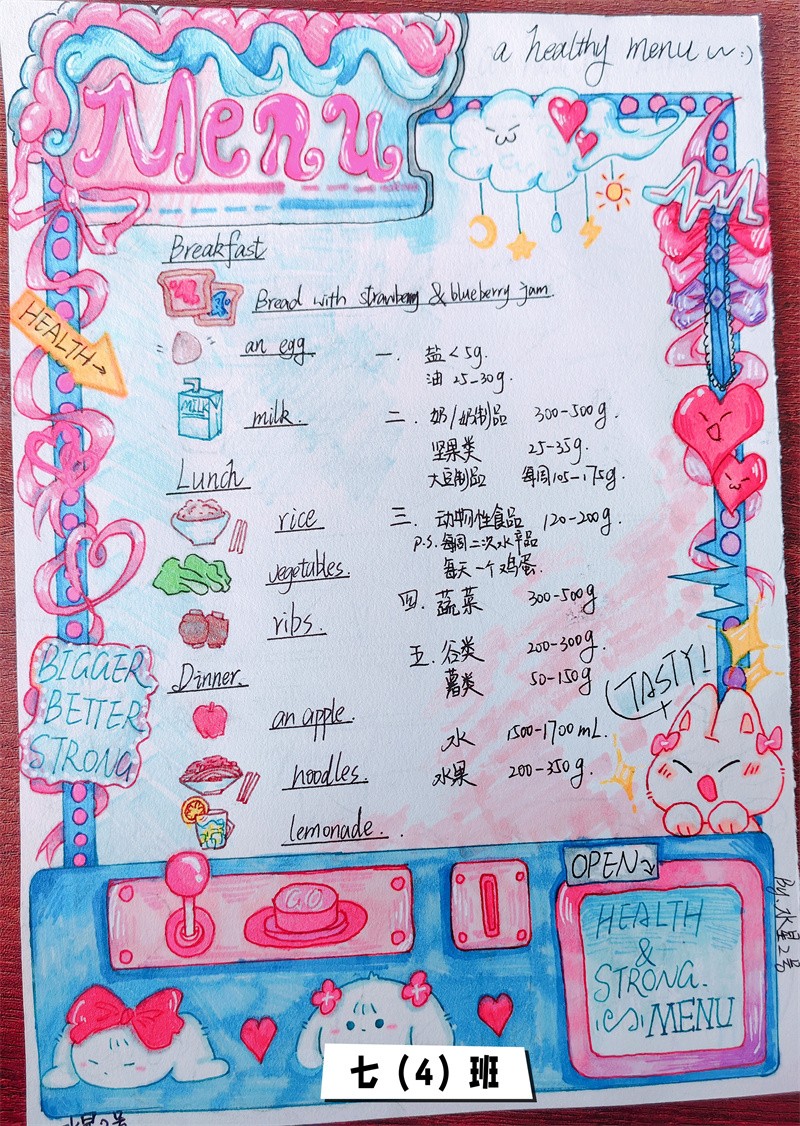 a healthy menu
Menu
Breakfast
Bread with strawberry & blueberry jam.
HEALTH→
an egg.
一. 盐<5g.
油 25-30g.
MILK
milk.
二. 奶/奶制品 300-500g.
坚果类 25-35g.
大豆制品 每周105-175g.
Lunch
rice
三. 动物性食品 120-200g.
P.S. 每周二次水产品
每天一个鸡蛋.
vegetables.
四. 蔬菜 300-500g
ribs.
五. 谷类 200-300g.
薯类 50-150g
BIGGER
BETTER
STRONG
TASTY!
Dinner.
an apple.
水 1500-1700mL.
noodles.
水果 200-350g.
lemonade.
GO
OPEN
HEALTH
&
STRONG.
MENU
By.水星2号
七（4）班
水星2号